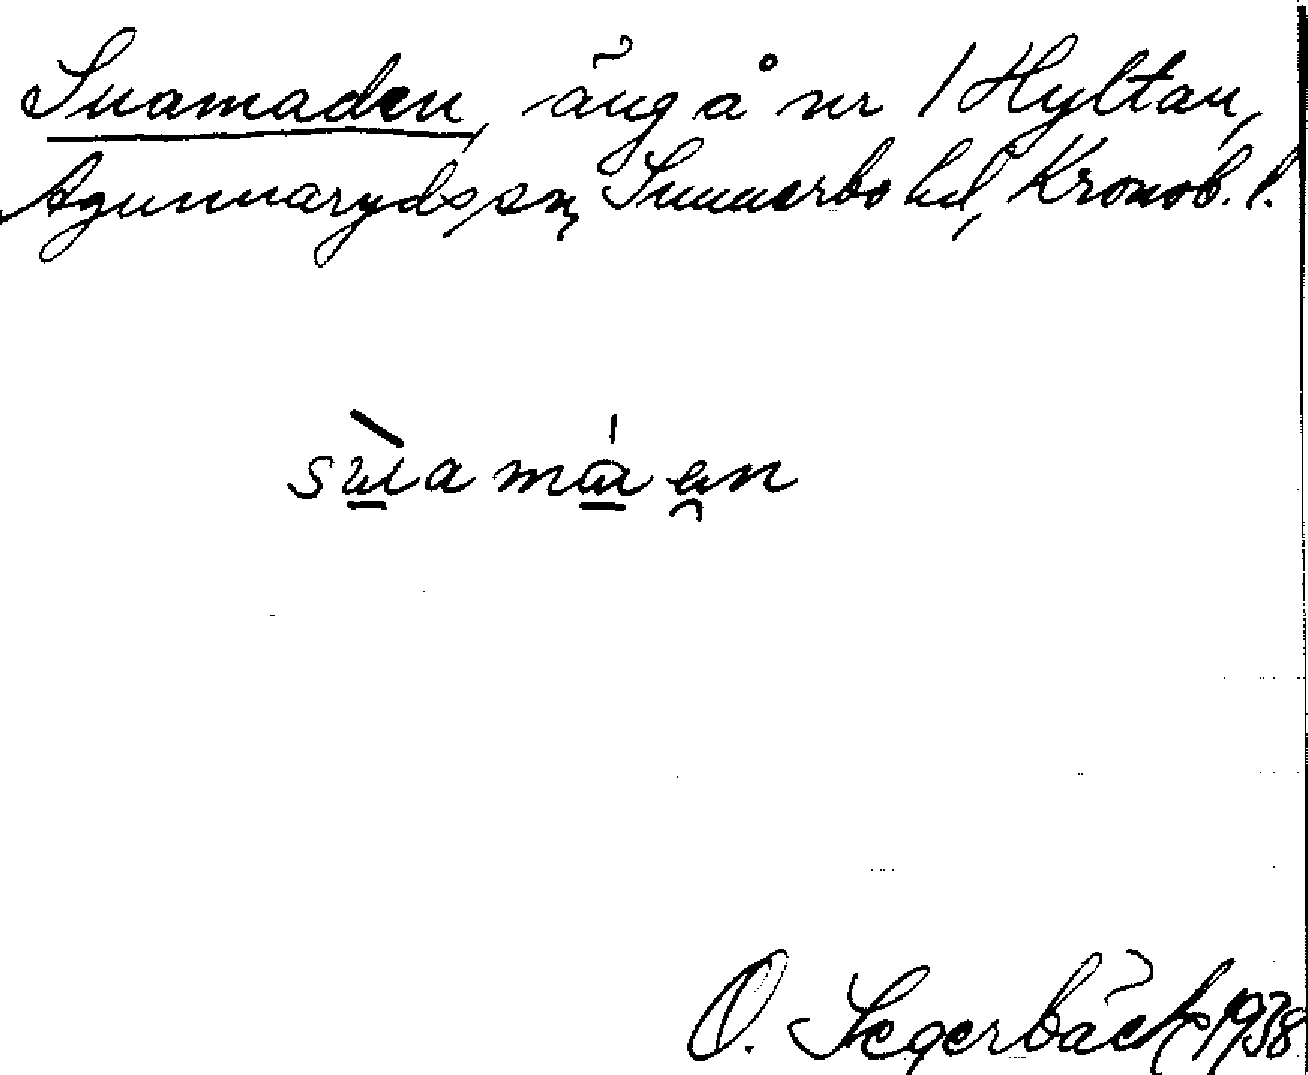 Suamaden, äng å nr 1 Hyltan,
Agunnaryds sn, Sunnerbo hd, Kronob. l.
sùamáen
O. Segerbäck 1938